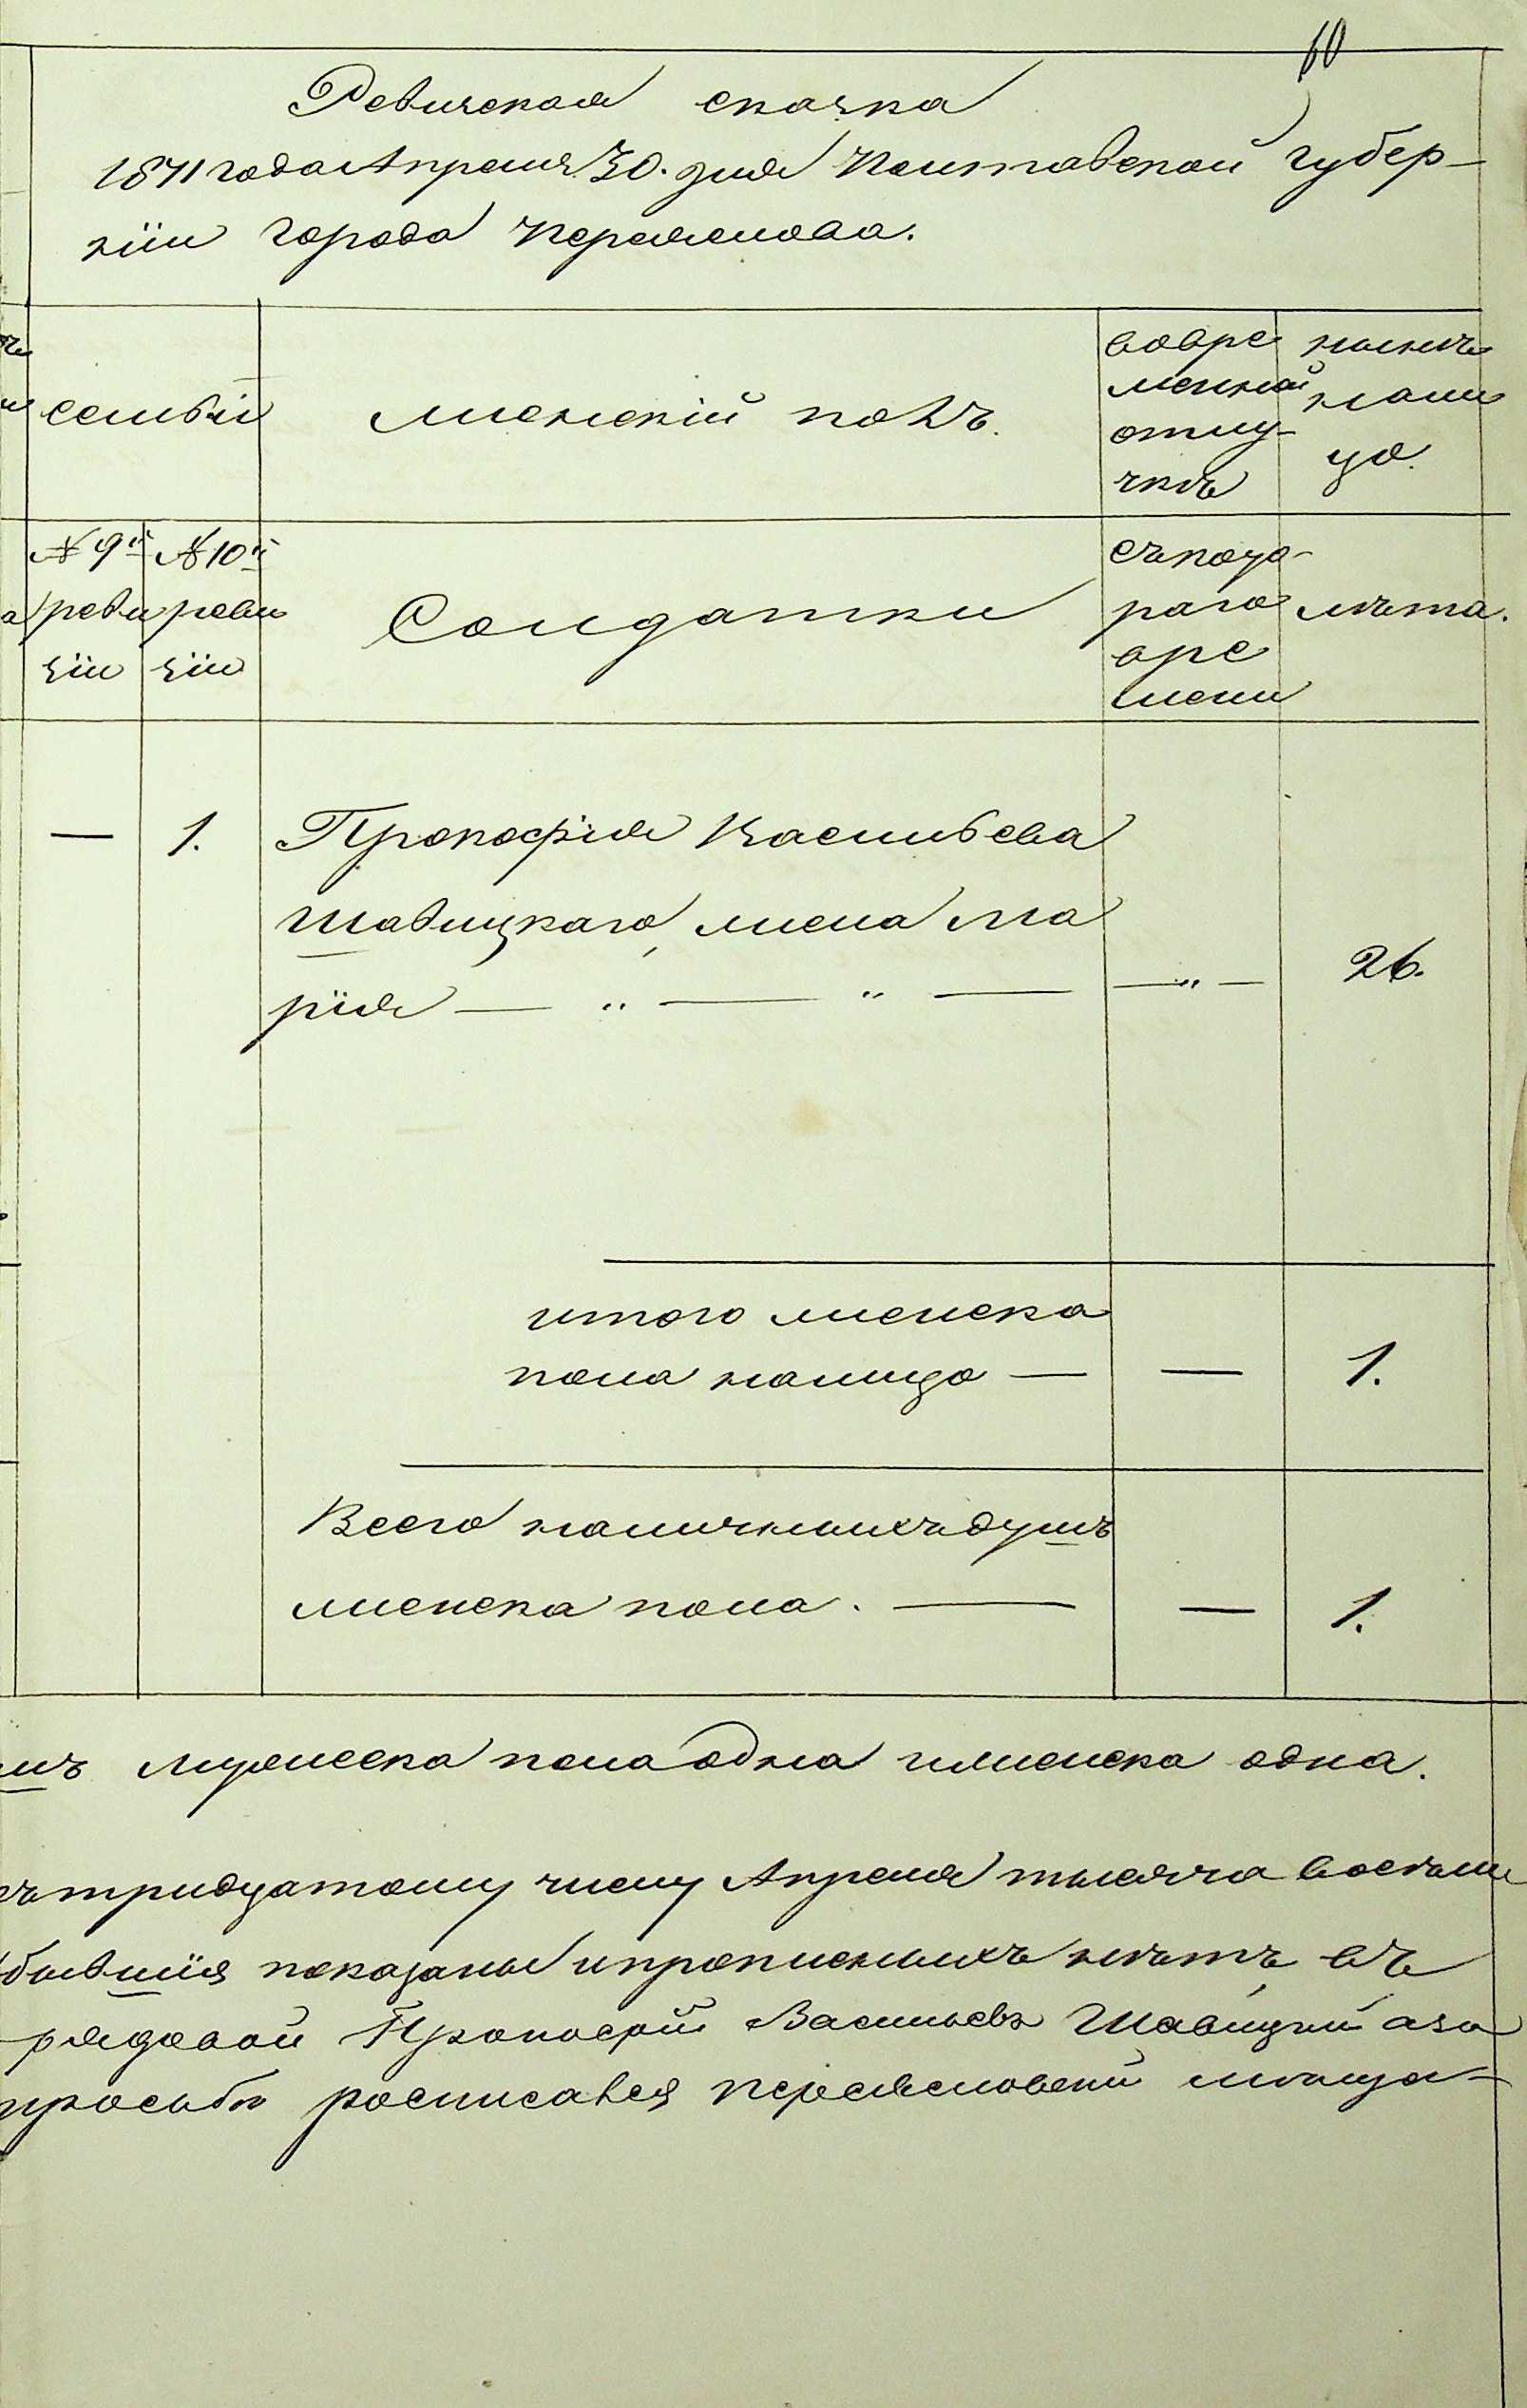 60
Ревизская сказка
1871 года Апреля 30. дня Полтавской губер-
ніи города Переяслова.
семьи
женскій полъ.
вовре
менной
отлу-
чкѣ
нынѣ
нали
цо.
№ 9й
реви
зіи
№ 10й
реви
зіи
Солдатки
съкото-
раго
вре
мени
лѣта.
— 1. Прокофія Васильева
Шавицкаго, жена Ма
рія — " — " — — " — 26.
итого женска
пола налицо — — 1.
Всего наличныхъ душъ
женска пола. — — 1.
шъ мужеска пола одна и женска одна.
ъ тридцатому числу Апреля тысяча восемь
бывшія показаны и прописныхъ нѣтъ въ
рядовой Прокофій Васильевъ Шавицкій аза
просьбѣ росписался переясловскій мѣща-